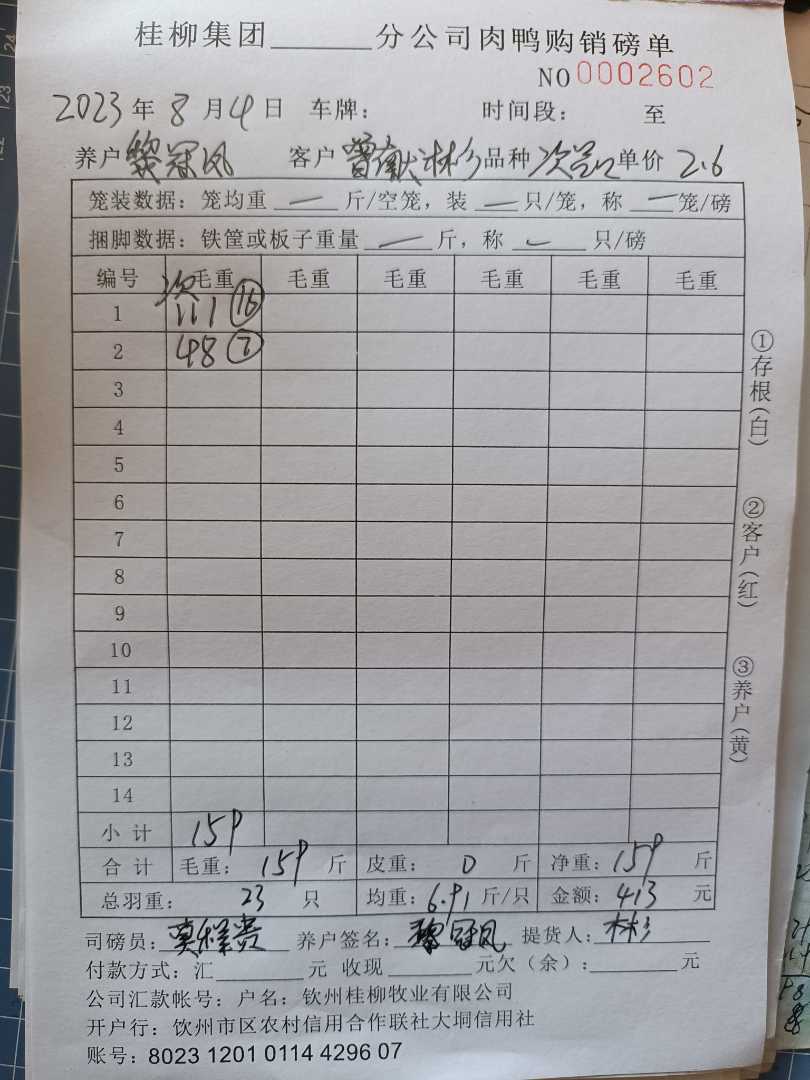 桂柳集团______分公司肉鸭购销磅单
NO 0002602
2023年 8 月 4 日 车牌： 时间段： 至
养户 黎冠凤 客户 林杉 品种 次 单价 2.6
笼装数据：笼均重 — 斤/空笼，装 — 只/笼，称 — 笼/磅
捆脚数据：铁筐或板子重量 — 斤，称 — 只/磅
编号 毛重 毛重 毛重 毛重 毛重 毛重
次
1 111 ⑯
2 48 ⑦
3
4
5
6
7
8
9
10
11
12
13
14
小 计 159
合 计 毛重： 159 斤 皮重： 0 斤 净重： 159 斤
总羽重： 23 只 均重： 6.91 斤/只 金额： 413 元
司磅员： 莫 贵 养户签名： 黎冠凤 提货人： 林杉
付款方式：汇______元 收现______元欠（余）：______元
公司汇款帐号：户名：钦州桂柳牧业有限公司
开户行：钦州市区农村信用合作联社大垌信用社
账号：8023 1201 0114 4296 07
①存根（白）
②客户（红）
③养户（黄）